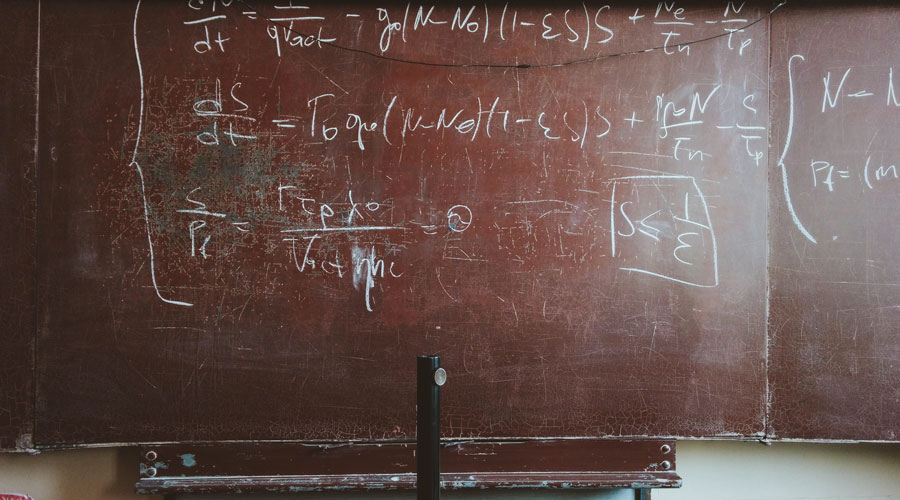 dN/dt = I/qVact - g0(N-N0)(1-εS)S + Ne/τn - N/τp
dS/dt = Γ0 g0(N-N0)(1-εS)S + Γβ0N/τn - S/τp
S/Pf = Γτpλ0/Vact ηhc =
S ≤ 1/ε
N - N
Pf = (m